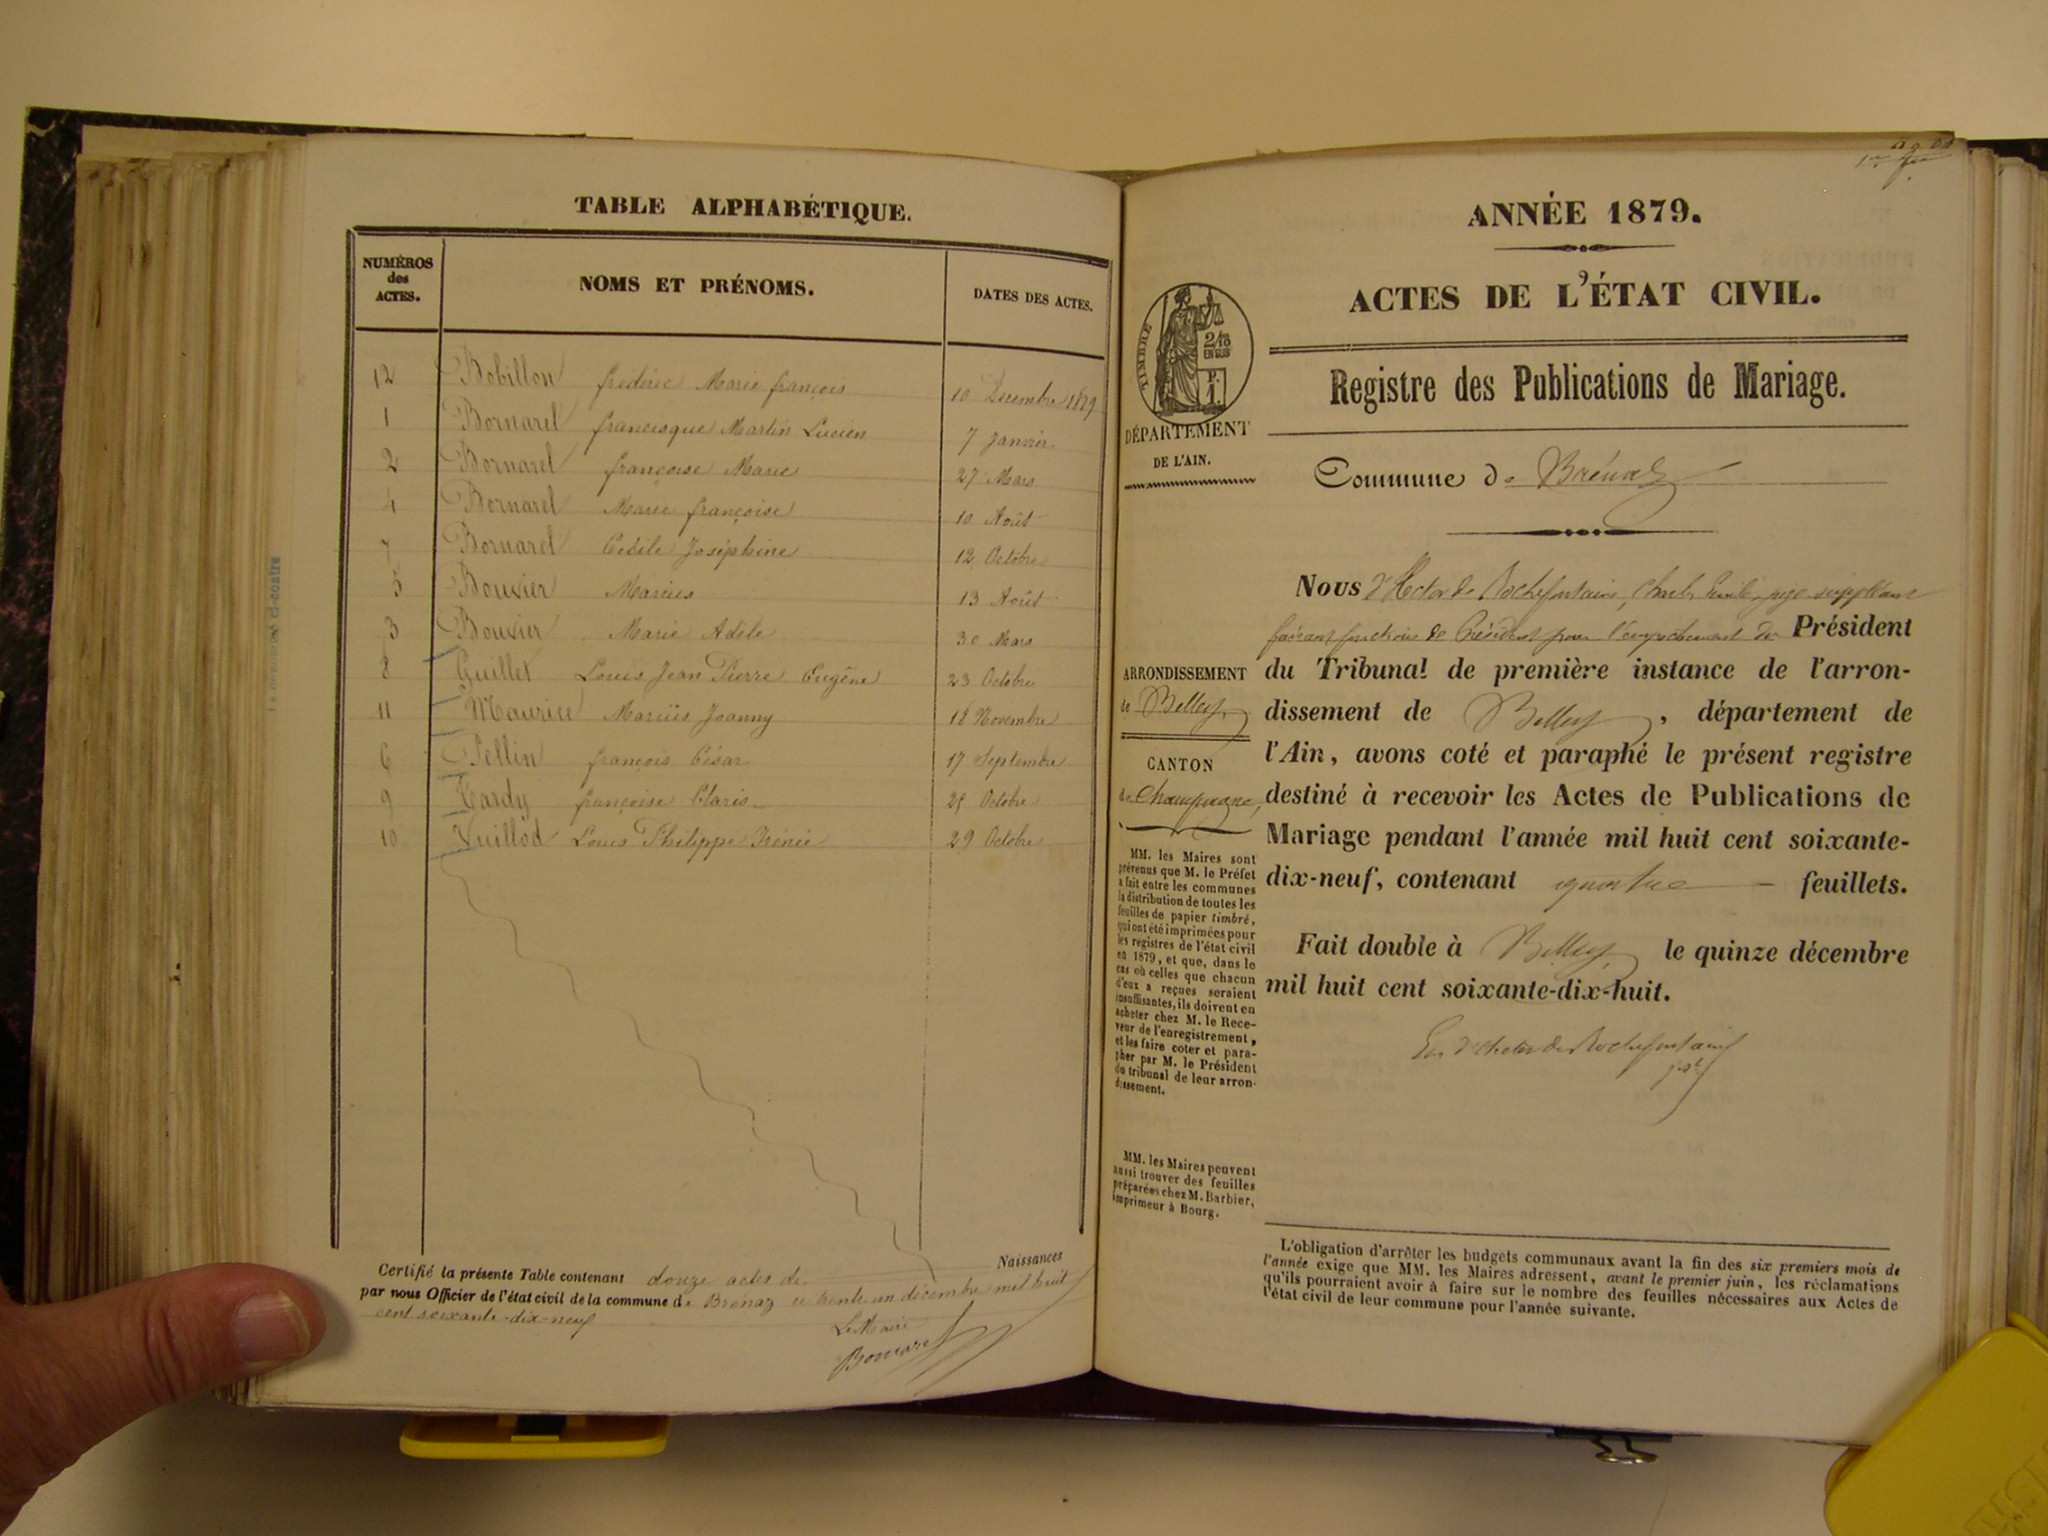 TABLE ALPHABÉTIQUE.
NUMÉROS
des
ACTES.
NOMS ET PRÉNOMS.
DATES DES ACTES.
12 Bobillon frédéric Marie françois 10 Décembre 1879
1 Bornarel francisque Martin Lucien 7 Janvier
2 Bornarel françoise Marie 27 Mars
4 Bornarel Marie françoise 10 Août
7 Bornarel Cécile Joséphine 12 Octobre
5 Bouvier Marius 13 Août
3 Bouvier Marie Adèle 30 Mars
8 Guillet Louis Jean Pierre Eugène 23 Octobre
11 Maurice Marius Joanny 18 Novembre
6 Pellin françois César 17 Septembre
9 Tardy françoise Claris 25 Octobre
10 Vuillod Louis Philippe Irénée 29 Octobre
Certifié la présente Table contenant douze actes de Naissances
par nous Officier de l'état civil de la commune de Brénaz ce trente un décembre mil huit
cent soixante-dix-neuf
Le Maire
Bornarel
ci-contre
ANNÉE 1879.
ACTES DE L'ÉTAT CIVIL.
Registre des Publications de Mariage.
TIMBRE
2/10
EN SUS
DÉPARTEMENT
DE L'AIN.
Commune de Brénaz
Nous d'Hector de Rochefontaine, Charles Emile, juge suppléant
faisant fonctions de Président pour l'empêchement du Président
du Tribunal de première instance de l'arron-
dissement de Belley, département de
l'Ain, avons coté et paraphé le présent registre
destiné à recevoir les Actes de Publications de
Mariage pendant l'année mil huit cent soixante-
dix-neuf, contenant quatre feuillets.
Fait double à Belley, le quinze décembre
mil huit cent soixante-dix-huit.
d'Hector de Rochefontaine
ARRONDISSEMENT
de Belley,
CANTON
de Champagne,
MM. les Maires sont
prévenus que M. le Préfet
a fait entre les communes
la distribution de toutes les
feuilles de papier timbré,
qui ont été imprimées pour
les registres de l'état civil
en 1879, et que, dans le
cas où celles que chacun
d'eux a reçues seraient
insuffisantes, ils doivent en
acheter chez M. le Rece-
veur de l'enregistrement,
et les faire coter et para-
pher par M. le Président
du tribunal de leur arron-
dissement.
MM. les Maires peuvent
aussi trouver des feuilles
préparées chez M. Barbier,
imprimeur à Bourg.
L'obligation d'arrêter les budgets communaux avant la fin des six premiers mois de
l'année exige que MM. les Maires adressent, avant le premier juin, les réclamations
qu'ils pourraient avoir à faire sur le nombre des feuilles nécessaires aux Actes de
l'état civil de leur commune pour l'année suivante.